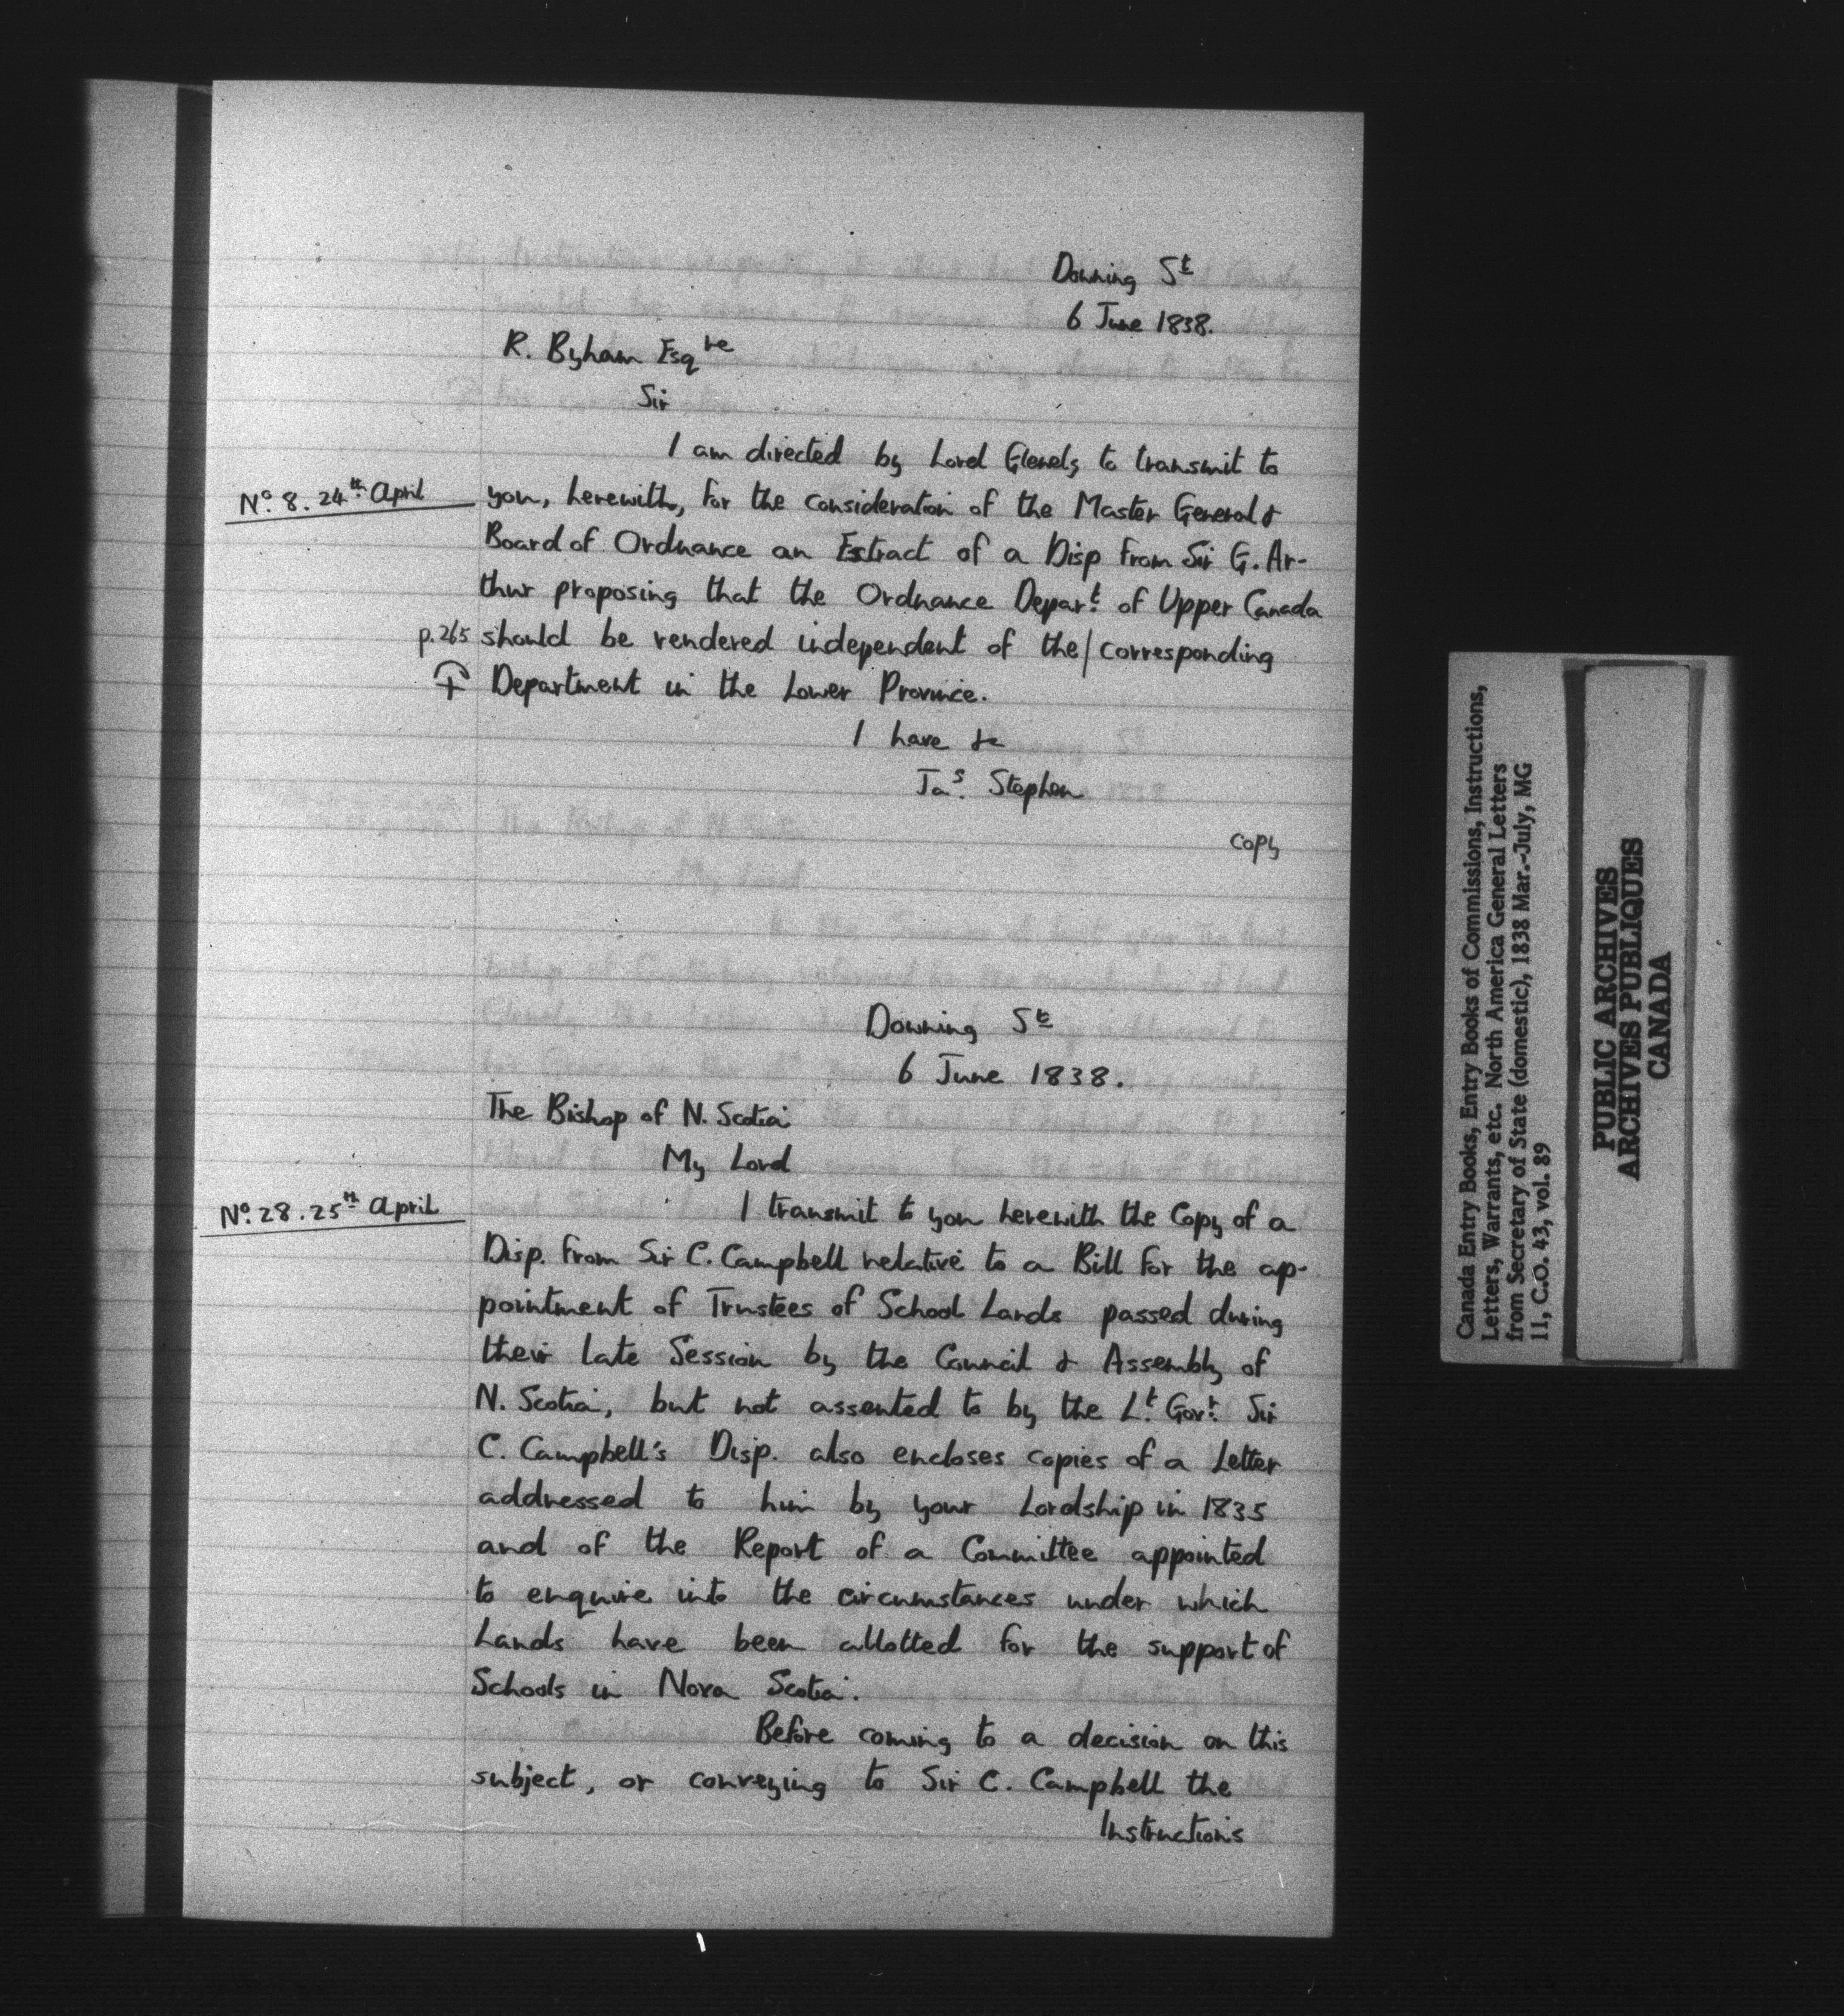 Downing St
6 June 1838.
R. Byham Esqre
Sir
I am directed by Lord Glenelg to transmit to
No. 8. 24th April
you, herewith, for the consideration of the Master General &
Board of Ordnance an Extract of a Disp from Sir G. Ar-
thur proposing that the Ordnance Depart. of Upper Canada
p.265 should be rendered independent of the/corresponding
Department in the Lower Province.
I have &c
Jas. Stephen
copy
Downing St
6 June 1838.
The Bishop of N. Scotia
My Lord
No. 28. 25th April
I transmit to you herewith the Copy of a
Disp. from Sir C. Campbell relative to a Bill for the ap-
pointment of Trustees of School Lands passed during
their late Session by the Council & Assembly of
N. Scotia, but not assented to by the Lt. Govr. Sir
C. Campbell's Disp. also encloses copies of a Letter
addressed to him by your Lordship in 1835
and of the Report of a Committee appointed
to enquire into the circumstances under which
Lands have been allotted for the support of
Schools in Nova Scotia.
Before coming to a decision on this
subject, or conveying to Sir C. Campbell the
Instructions
Canada Entry Books, Entry Books of Commissions, Instructions,
Letters, Warrants, etc. North America General Letters
from Secretary of State (domestic), 1838 Mar.-July, MG
11, C.O. 43, vol. 89
PUBLIC ARCHIVES
ARCHIVES PUBLIQUES
CANADA